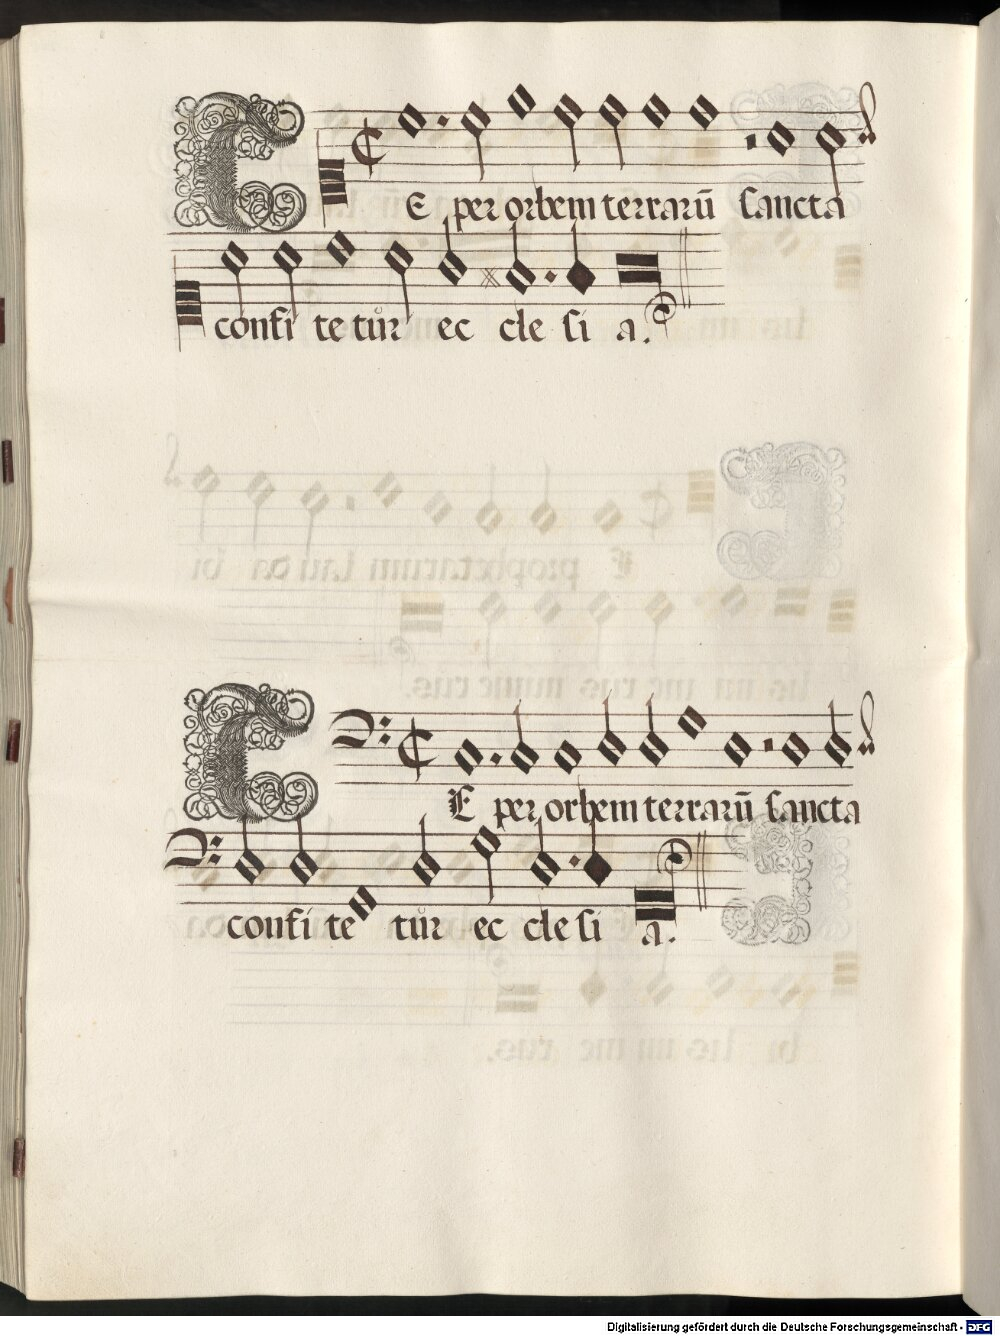 TE per orbem terrarū sancta
confi te tůr ec cle si a.
TE per orbem terrarū sancta
confi te tůr ec cle si a.
Digitalisierung gefördert durch die Deutsche Forschungsgemeinschaft - DFG